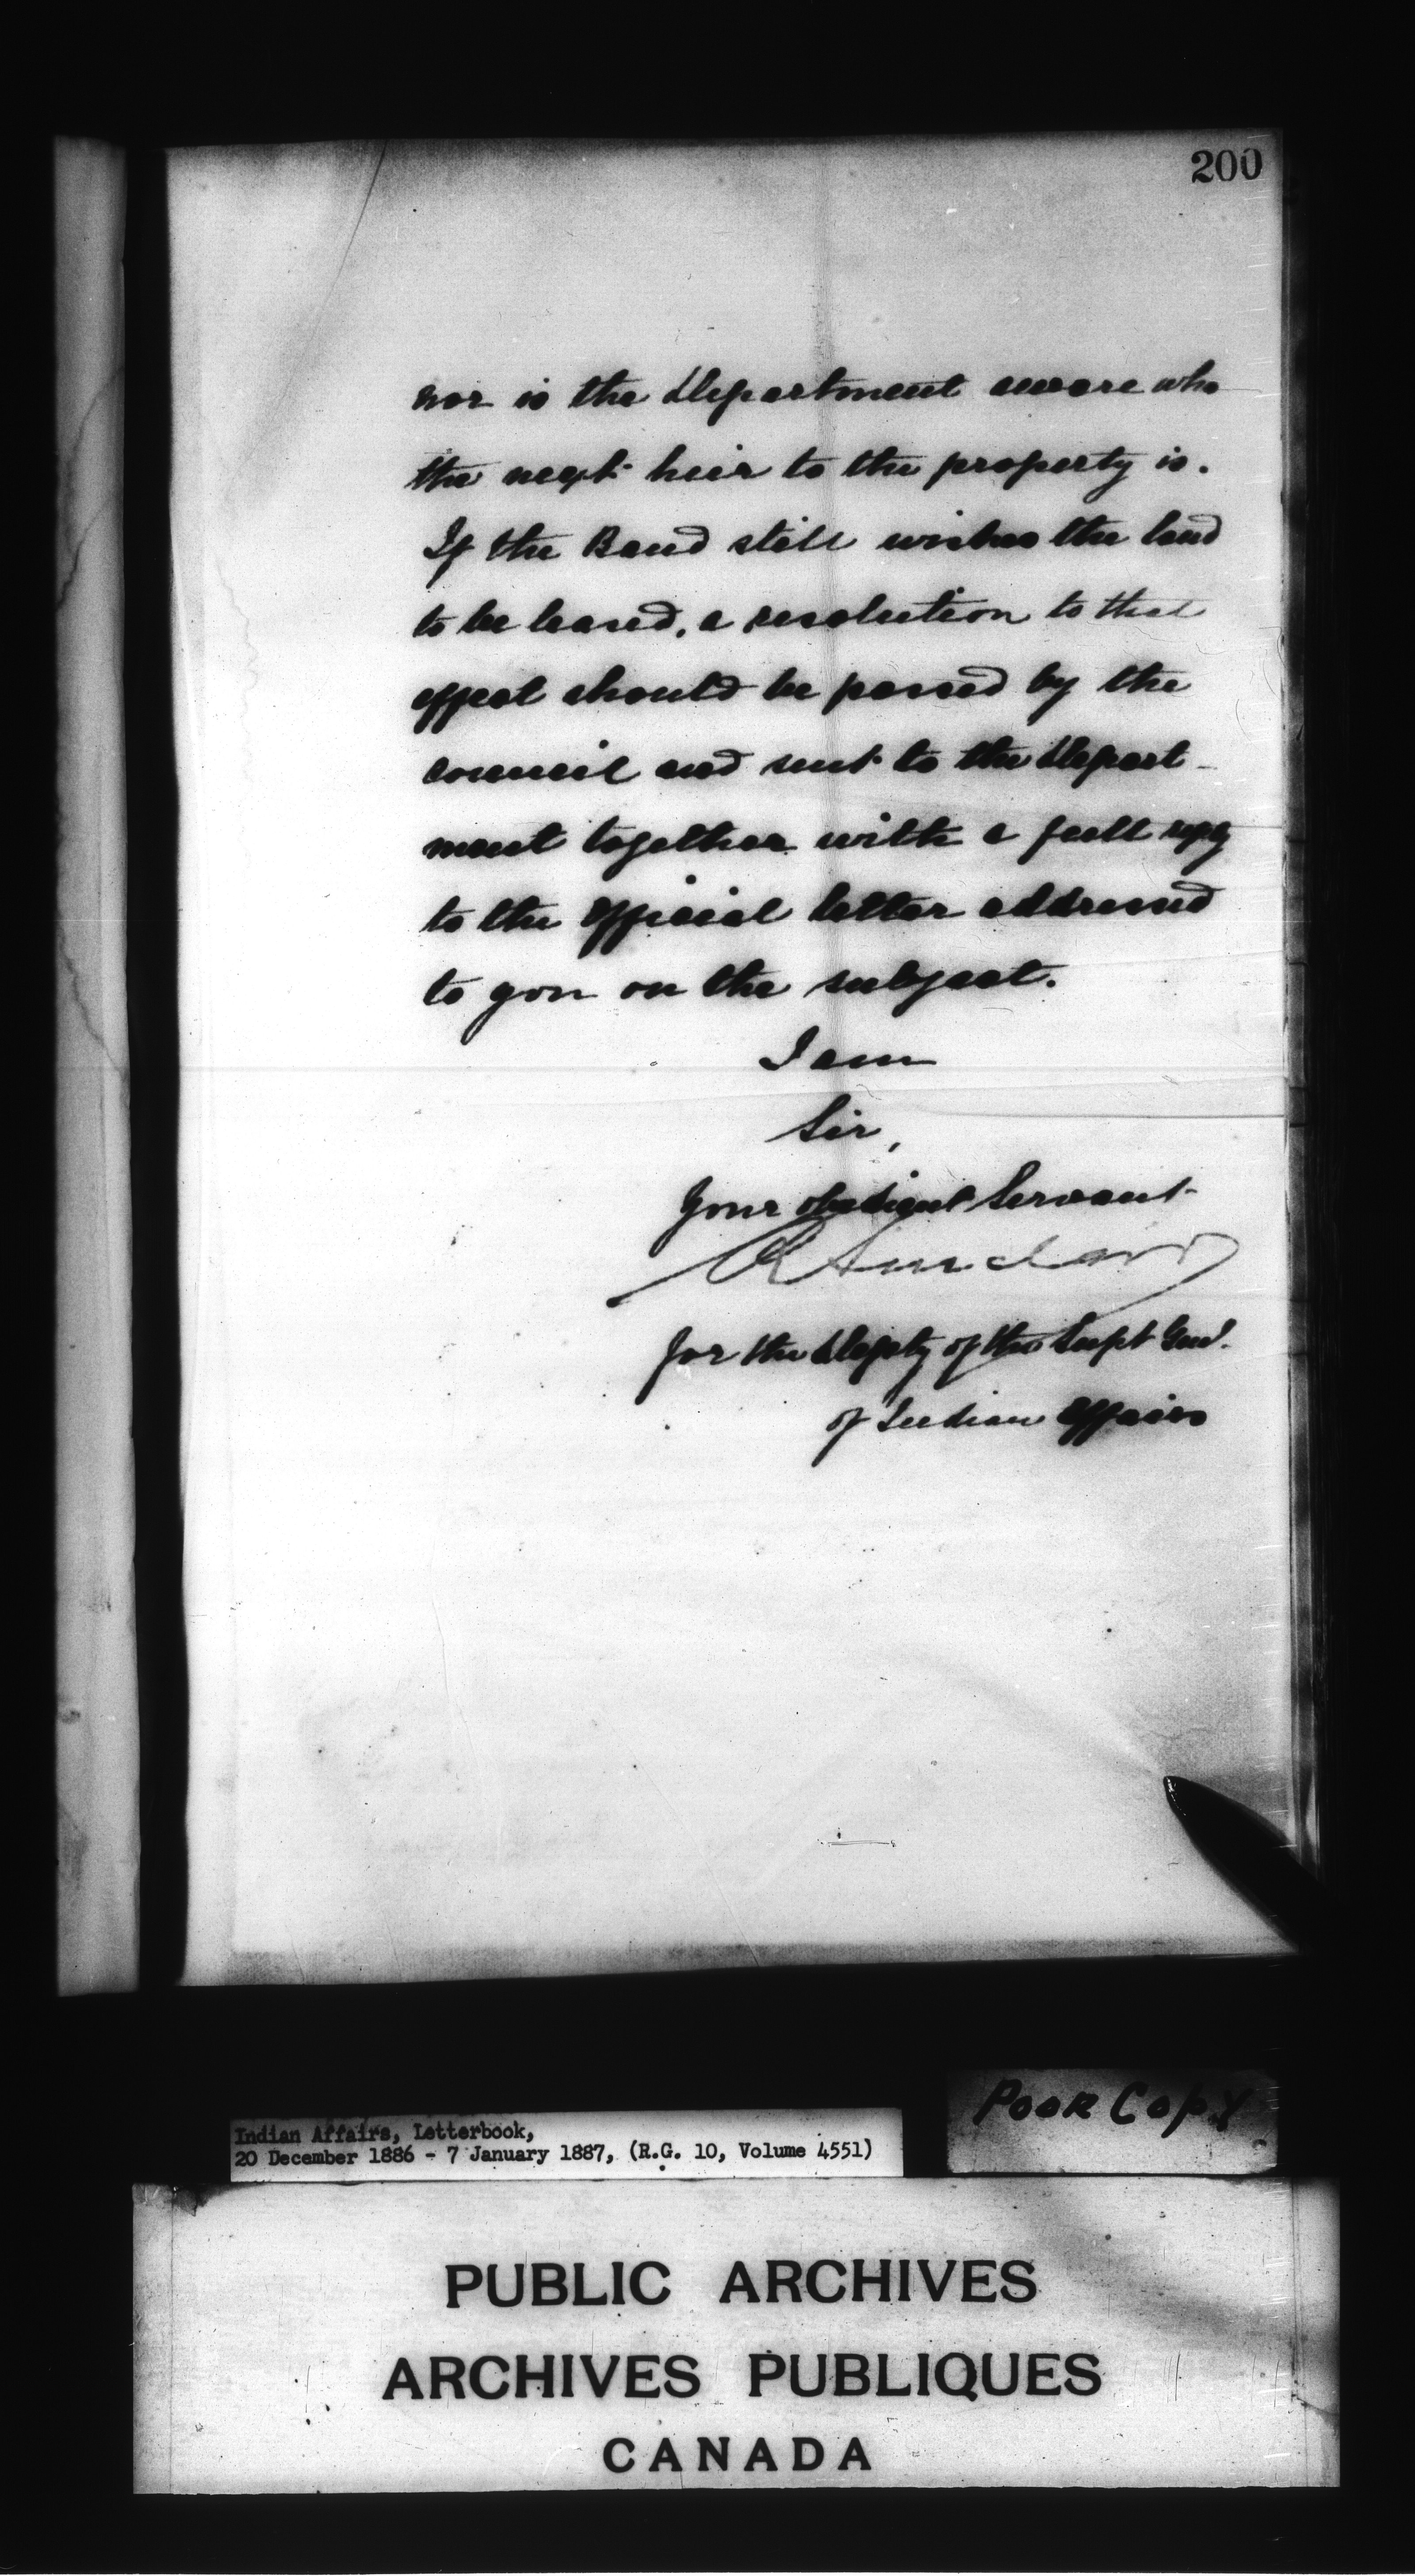 200
nor is the Department aware who
the next heir to the property is.
If the Band still wishes the land
to be leased, a resolution to that
effect should be passed by the
council and sent to the Depart-
ment together with a full reply
to the official letter addressed
to you on the subject.
I am
Sir,
Your obedient Servant
R Sinclair
for the Deputy of the Supt Genl.
of Indian Affairs
POOR COPY
Indian Affairs, Letterbook,
20 December 1886 - 7 January 1887, (R.G. 10, Volume 4551)
PUBLIC ARCHIVES
ARCHIVES PUBLIQUES
CANADA